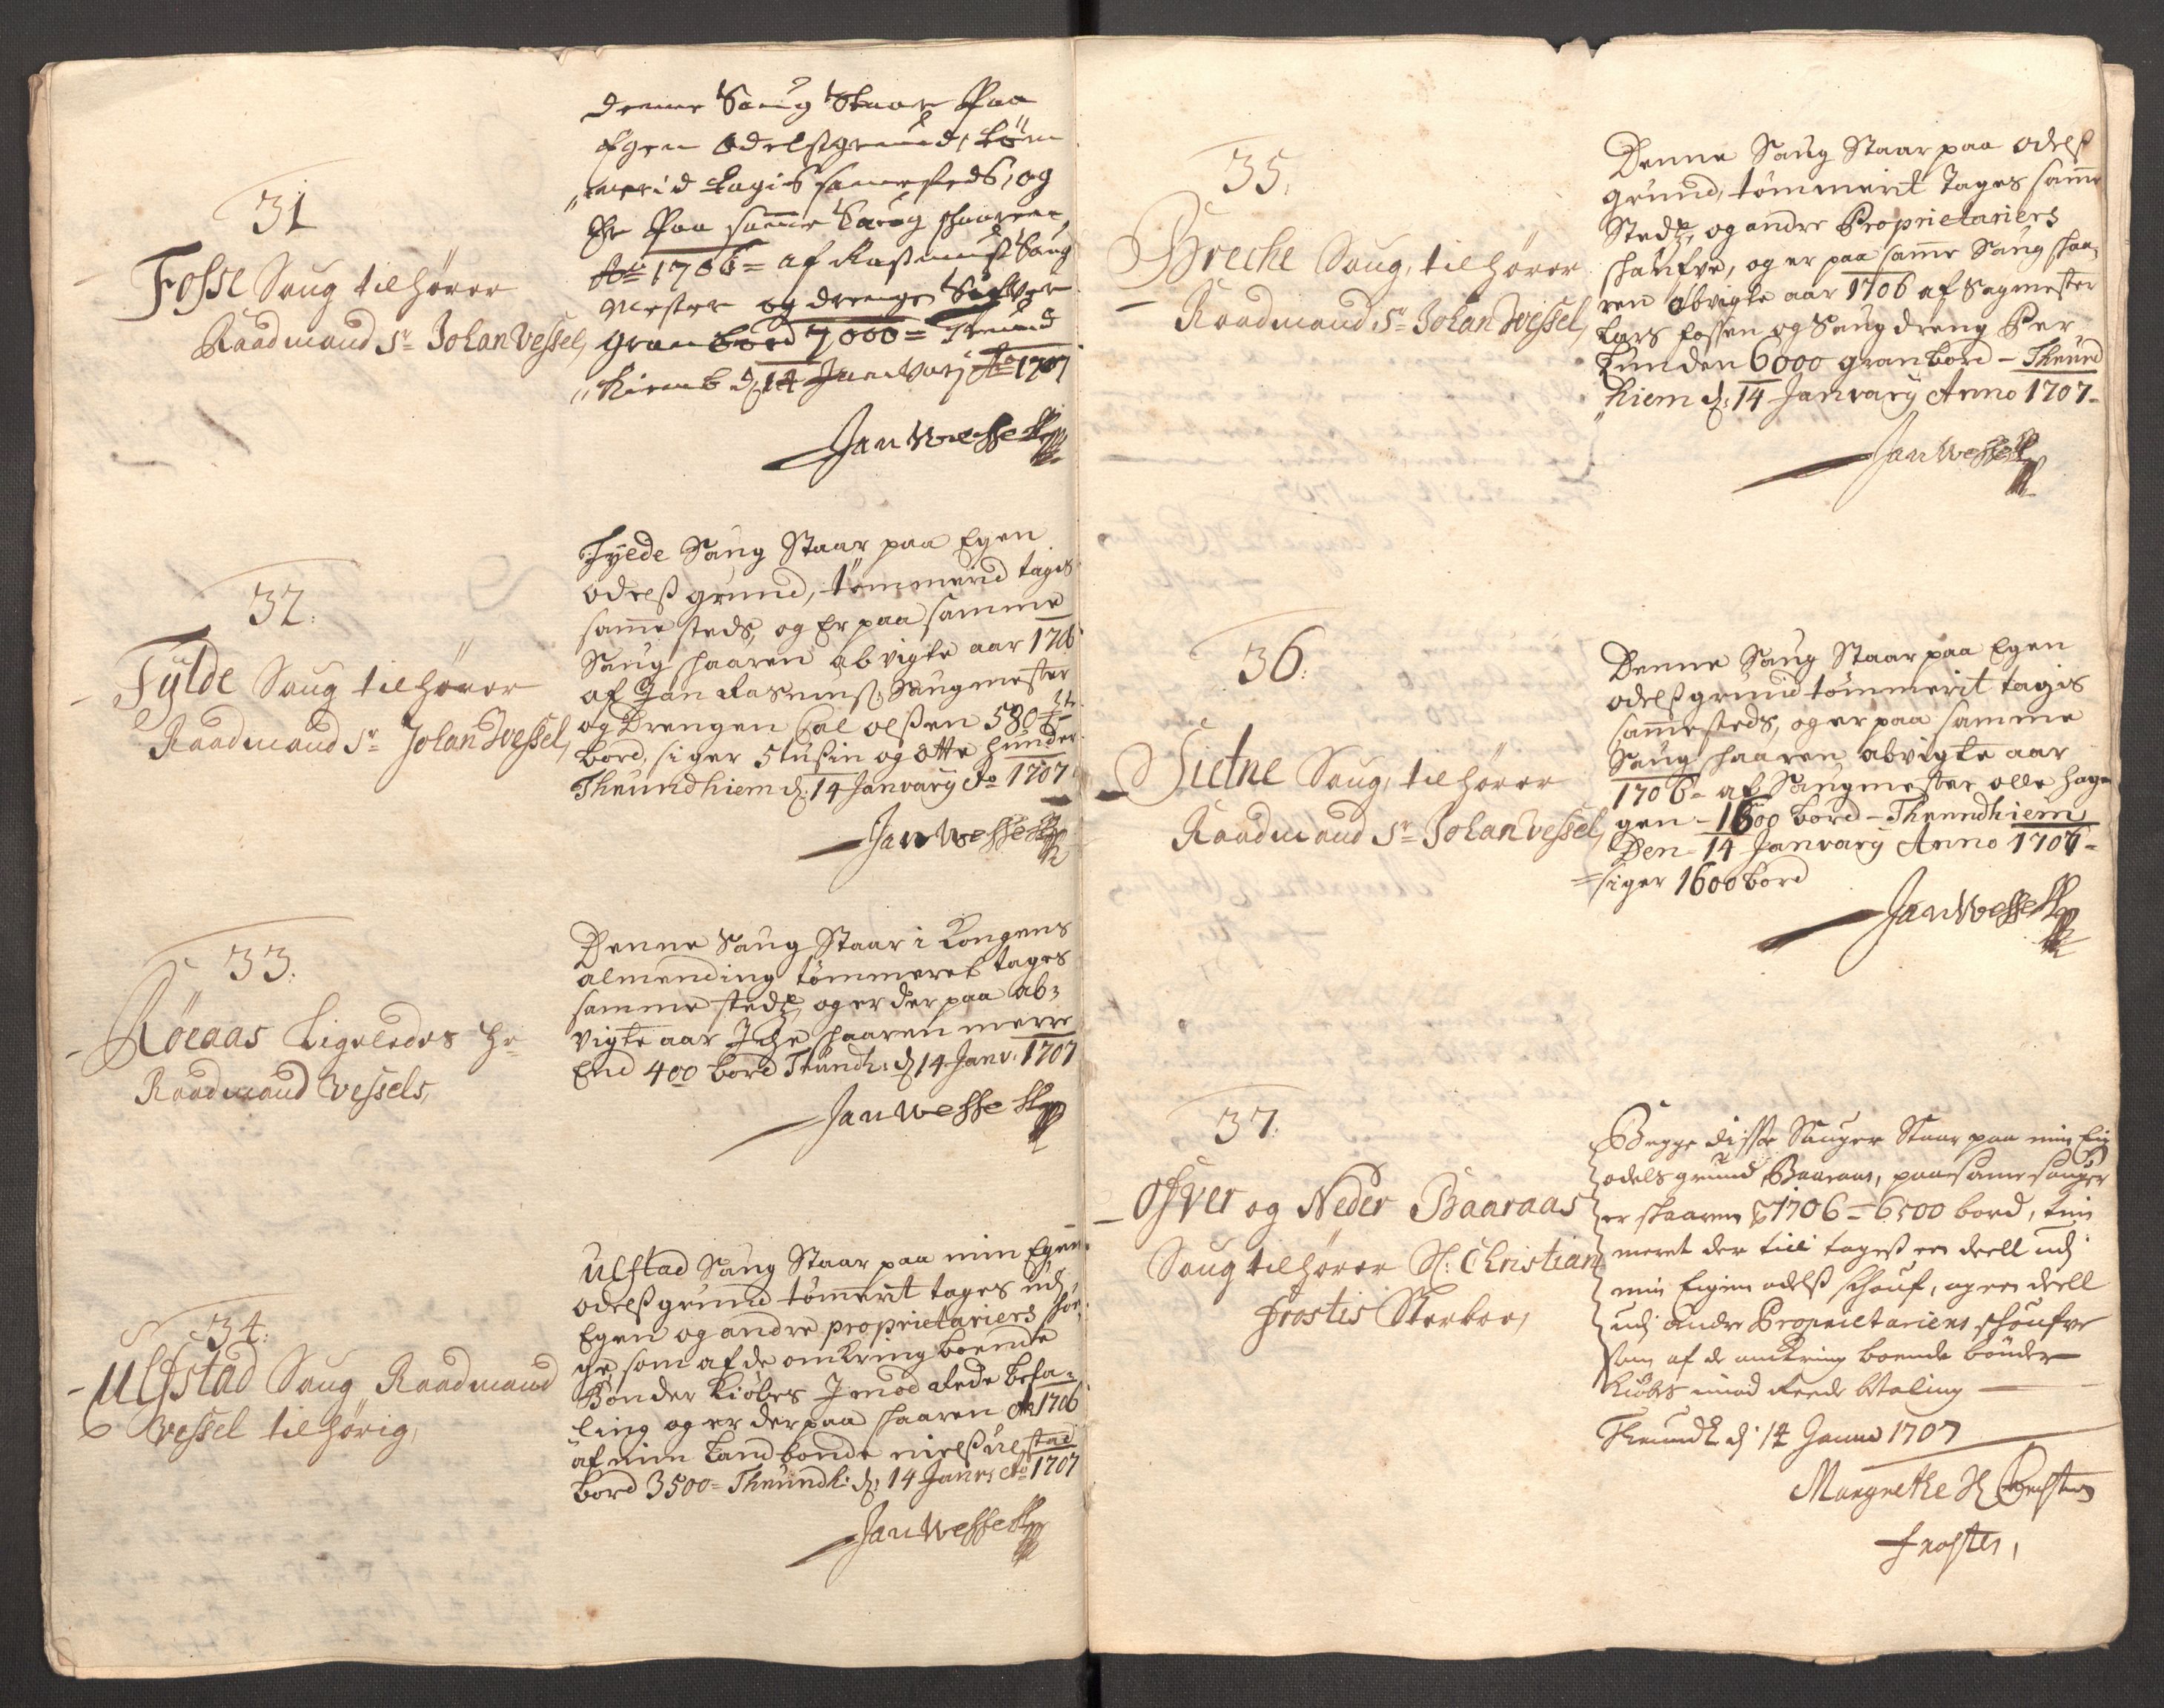 31
Fosse Saug tilhörer
Raadmand Sr Johan Vessel,
denne Saug Staar Paa
Egen Odelsgrund, töm
merid tagis sammesteds, og
Er Paa samme Saug skaaren
Ao 1706 = af Rasmus Saug
Mester og drenge
gran bord 7000 = Trund
hiemb d 14 Januarj Ao 1707
Jan Wessell
32.
Fylde Saug tilhörer
Raadmand Sr Johan Wessel,
Fyelde Saug Staar paa Egen
odelss grund, tömmerid tagis
samme steds, og Er paa samme
Saug skaaren abvigte aar 1706
af Jan Rasmuss. Saugmester
og Drengen Ol olssen
bord, siger 5 tusin og otte hunder
Thrundhiem d: 14 January Ao 1707
Jan Wessell
33.
Röeaas Ligeledes Hr
Raadmand Vessels,
Denne Saug Staar i Kongens
almending tömmeret tages
samme sted, og er der paa ab=
vigte aar Iche skaaren merre
End 400 bord Trundh: d 14 Janv. 1707
Jan Wessell
34.
Ulfstad Saug Raadmand
Vessel tilhörig,
Ulstad Saug Staar paa min Egen
odelss grund tömmerit tages udj
Egen og andre proprietariers sko
ge, som af de omkring boende
Bönder kiöbes Imod Rede beta=
ling og er der paa skaaren Ao 1706
af min Landbonde nielss Ulstad
bord 3500 = Thrundh: d: 14 Janv: Ao 1707
Jan Wessell
35.
Breche Saug, tilhörer
Raadmand Sr Johan Wessel,
Denne Saug Staar paa odelss
grund, tömmerit tages samme
Sted, og andre Proprietariers
skaufve, og er paa samme Saug skaa
ren abvigte aar 1706 af Sagmester
Lars fossen og Saug dreng Per
Lunden 6000 gran bord - Thrund
hiem d: 14 January Anno 1707 -
Jan Wessell
36.
Sietne Saug, tilhörer
Raadmand Sr Johan Vessel,
Denne Saug Staar paa Egen
odelss grund tömmerit tagis
sammesteds, og er paa samme
Saug skaaren abvigte aar
1706 = af Saugmester olle hage
gen - 1600 bord - Thrundhiem
Den - 14 January Anno 1707 -
= siger 1600 bord
Jan Wessell
37.
Ofver og Neder Baaraas
Saug tilhörer Sl: Christian
Frostis Sterboe,
Begge disse Sauger Staar paa min Eig
odels grund Baaraas, paa samme sauger
er skaaren 1706 = 6500 bord, tim
meret der till tages en deell udj
min Eigen odelss schouf, og en deell
udj andre Proprietariers skoufve
som af de omkring boende bönder
kiöbes imod Reede betaling
Thrundh d 14 Janua 1707
Margrethe Sl Christen
Frostes,